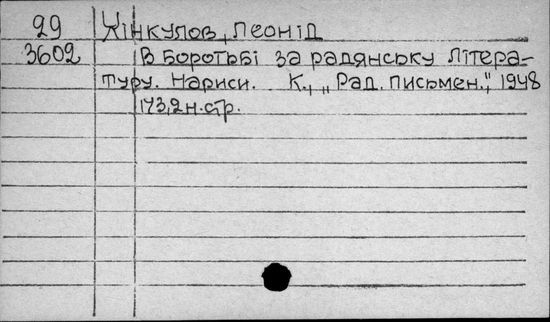 29 Хінкулов, Леонід
3602 В боротьбі за радянську літера-
туру. Нариси. К., „Рад. письмен.", 1948
173,2н.стр.